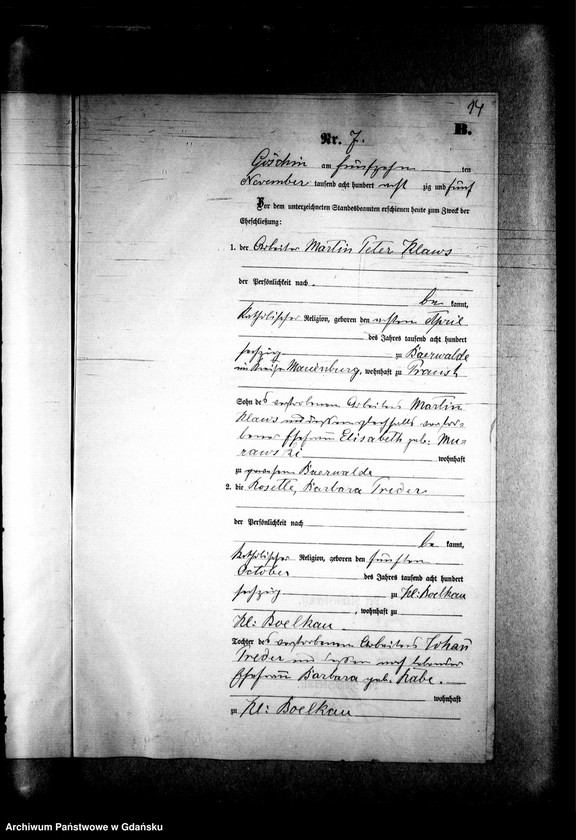 14
B.
Nr. 7.
Göschin am fünfzehn ten
November tausend acht hundert acht zig und fünf
Vor dem unterzeichneten Standesbeamten erschienen heute zum Zweck der
Eheschließung:
1. der Arbeiter Martin Peter Klaws
der Persönlichkeit nach
be kannt,
katholischer Religion, geboren den ersten April
des Jahres tausend acht hundert
sechzig zu Baerwalde
im Kreise Marienburg, wohnhaft zu Praust
Sohn des verstorbenen Arbeiters Martin
Klaws und dessen gleichfalls verstor-
bener Ehefrau Elisabeth geb: Mu-
rawski wohnhaft
zu gewesen Baerwalde
2. die Rosette, Barbara Treder
der Persönlichkeit nach
be kannt,
katholischer Religion, geboren den fünften
October des Jahres tausend acht hundert
sechzig zu Kl: Boelkau
, wohnhaft zu
Kl: Boelkau
Tochter des verstorbenen Arbeiters Johan
Treder und dessen noch lebender
Ehefrau Barbara geb. Rabe.
wohnhaft
zu Kl: Boelkau
Archiwum Państwowe w Gdańsku